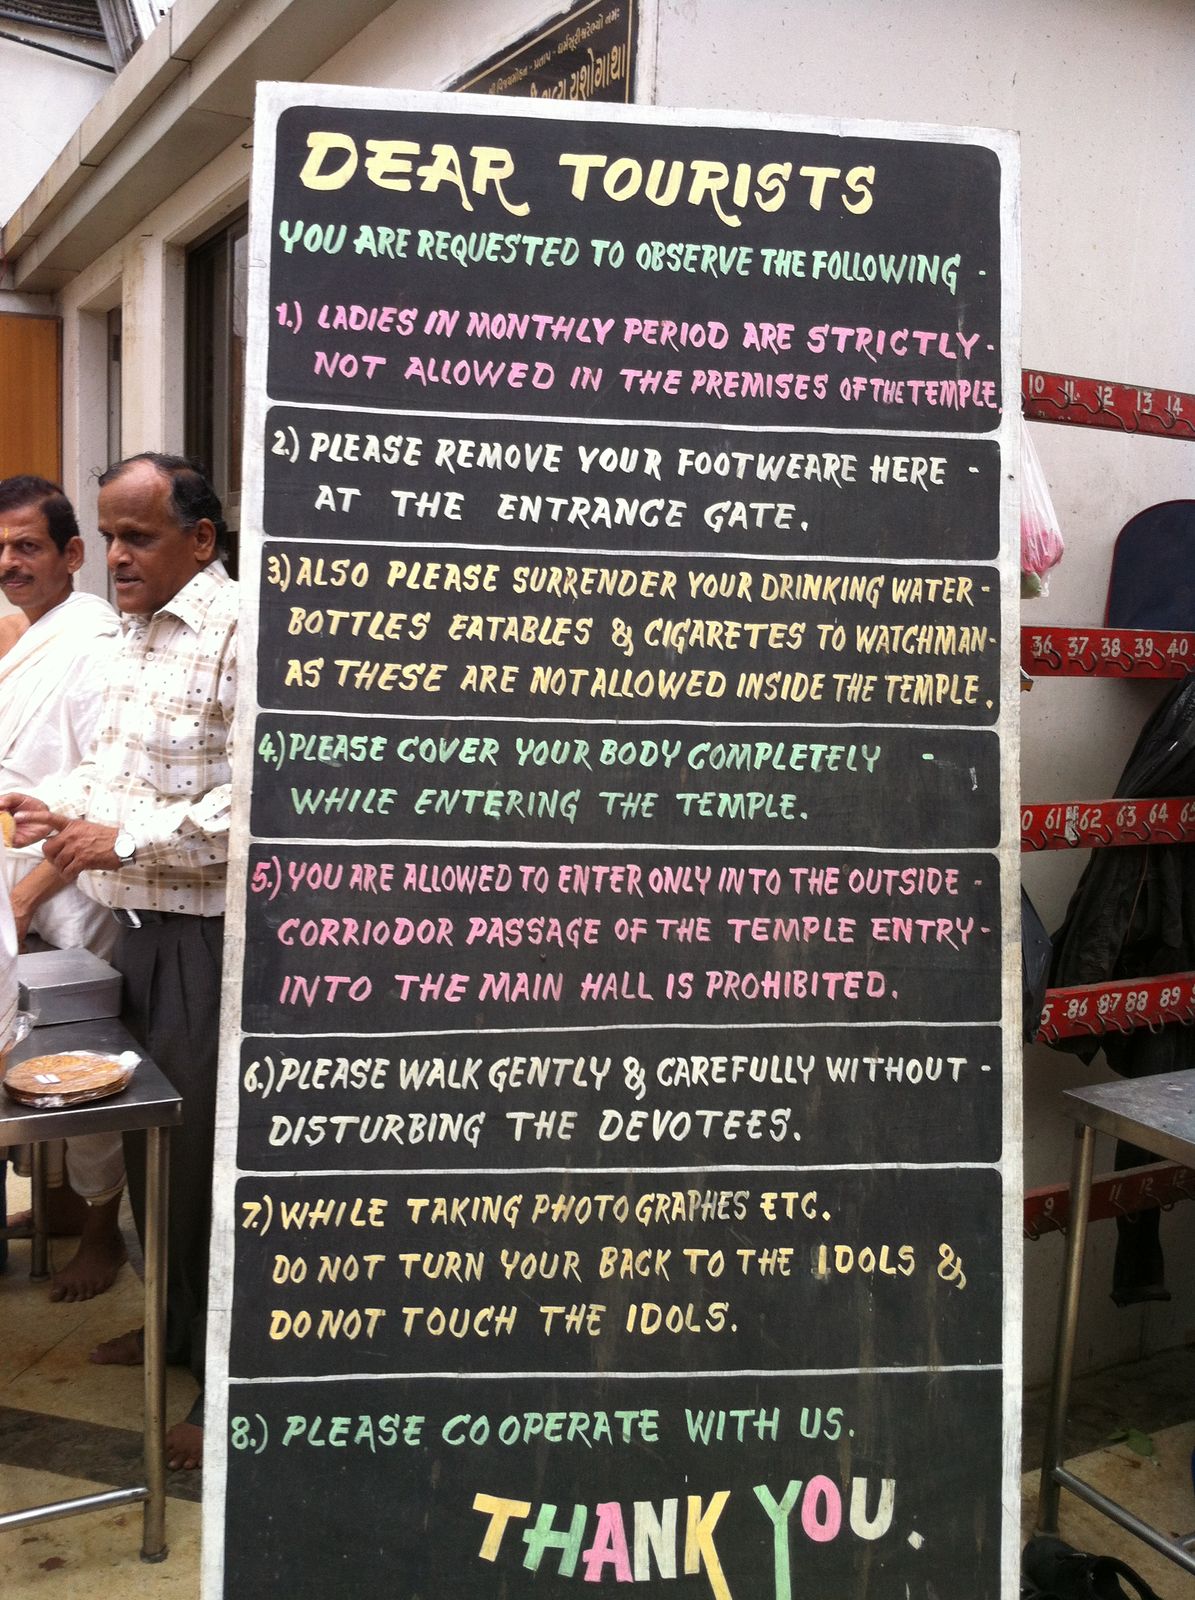 શ્રી વિજયમોહન - પ્રતાપ - ધર્મસૂરીશ્વરેભ્યો નમઃ
યશોગાથા
DEAR TOURISTS
YOU ARE REQUESTED TO OBSERVE THE FOLLOWING -
1.) LADIES IN MONTHLY PERIOD ARE STRICTLY -
NOT ALLOWED IN THE PREMISES OF THE TEMPLE.
2.) PLEASE REMOVE YOUR FOOTWEARE HERE -
AT THE ENTRANCE GATE.
3.) ALSO PLEASE SURRENDER YOUR DRINKING WATER -
BOTTLES EATABLES & CIGARETES TO WATCHMAN -
AS THESE ARE NOT ALLOWED INSIDE THE TEMPLE.
4.) PLEASE COVER YOUR BODY COMPLETELY -
WHILE ENTERING THE TEMPLE.
5.) YOU ARE ALLOWED TO ENTER ONLY INTO THE OUTSIDE -
CORRIODOR PASSAGE OF THE TEMPLE ENTRY -
INTO THE MAIN HALL IS PROHIBITED.
6.) PLEASE WALK GENTLY & CAREFULLY WITHOUT -
DISTURBING THE DEVOTEES.
7.) WHILE TAKING PHOTOGRAPHES ETC.
DO NOT TURN YOUR BACK TO THE IDOLS &
DO NOT TOUCH THE IDOLS.
8.) PLEASE COOPERATE WITH US.
THANK YOU.
10 11 12 13 14
36 37 38 39 40
61 62 63 64
86 87 88 89
9 11 12